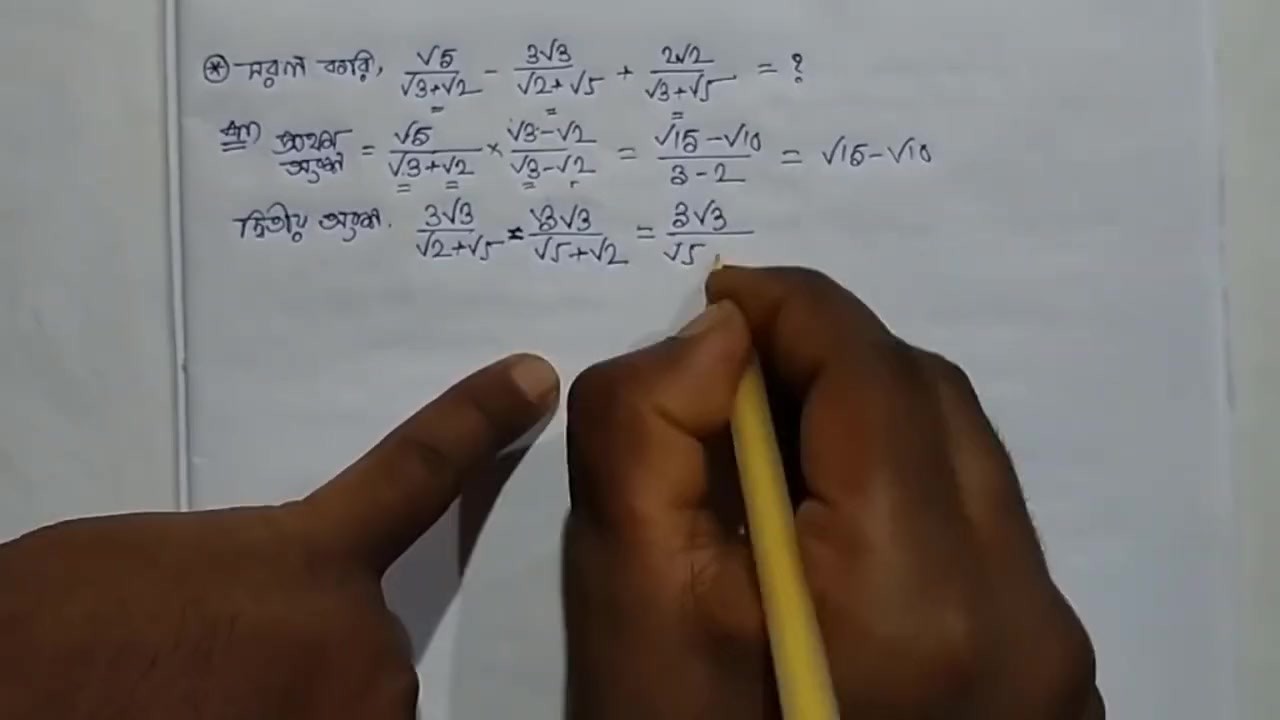 * সরল করি, √5/(√3+√2) - 3√3/(√2+√5) + 2√2/(√3+√5) = ?
প্রথম অংশ = √5/(√3+√2) × (√3-√2)/(√3-√2) = (√15-√10)/(3-2) = √15-√10
দ্বিতীয় অংশ. 3√3/(√2+√5) = 3√3/(√5+√2) = 3√3/√5